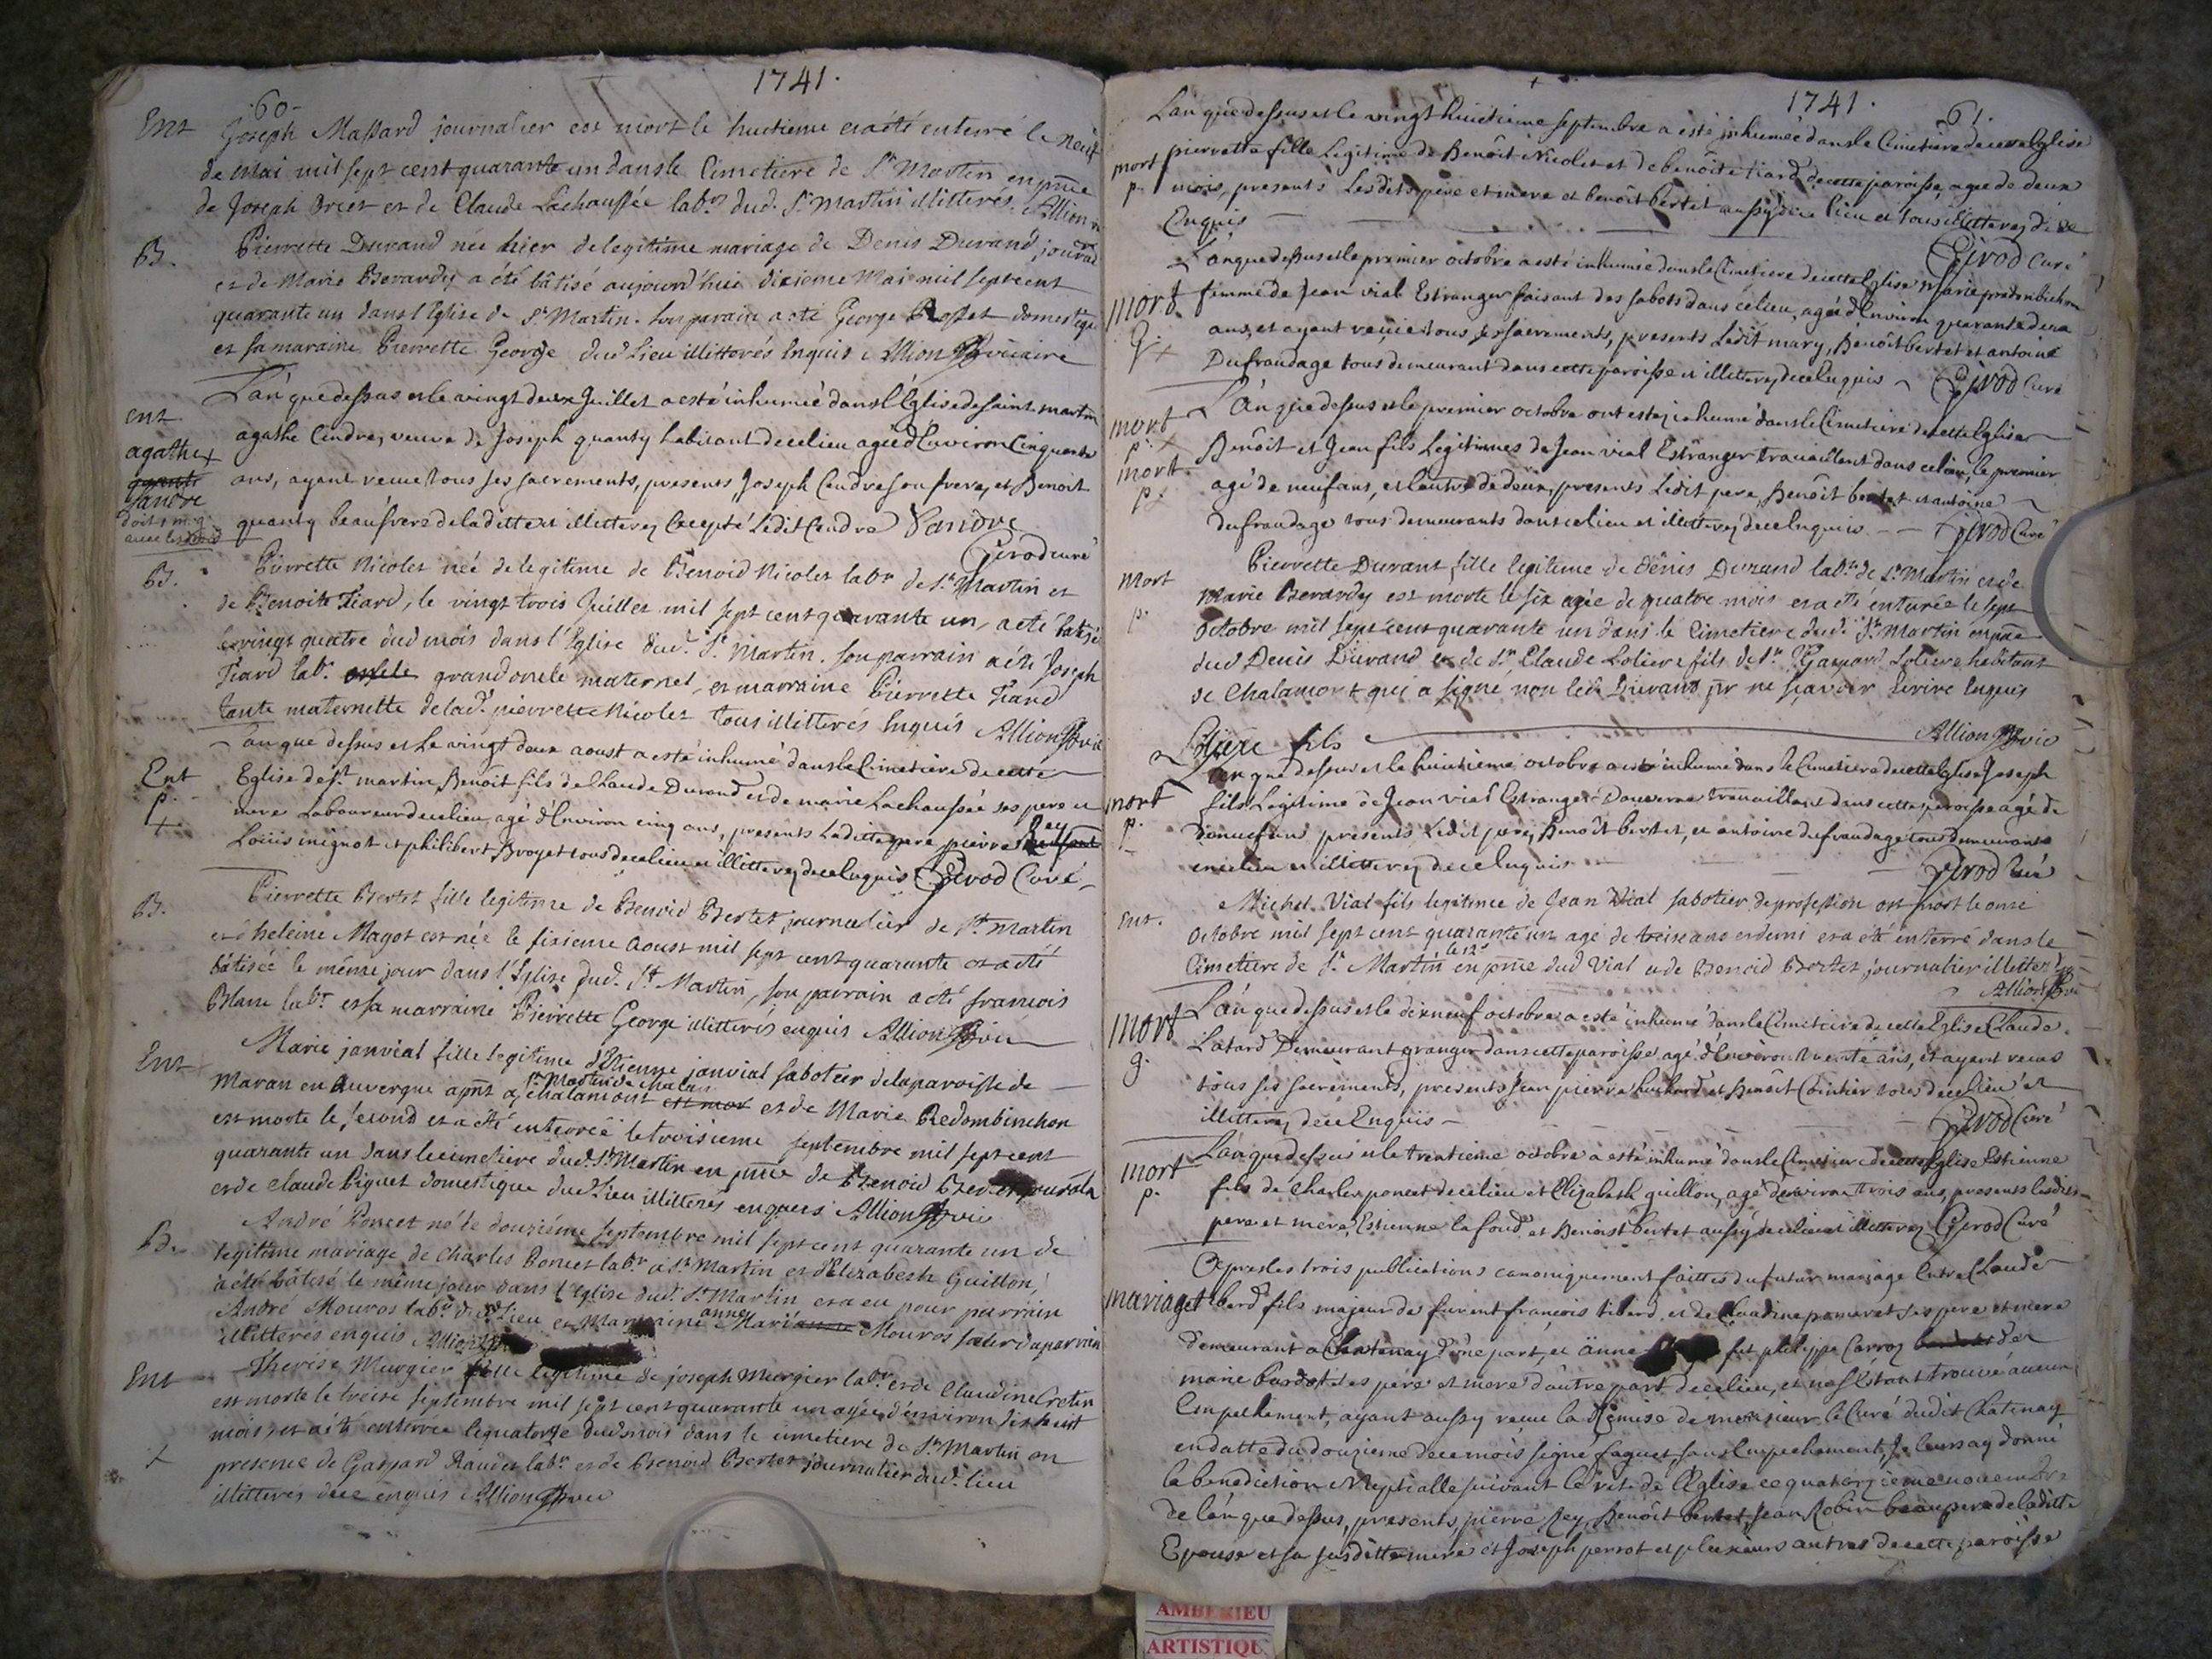 1741.
60
Ent Joseph Massard journalier est mort le huitieme et a été enterré le neuf
de mai mil sept cent quarante un dans le Cimetiere de St Martin en pnce
de Joseph Brier et de Claude Lachaussée labr dud. St Martin illiterés. Allion
B. Pierrette Durand née hier de legitime mariage de Denis Durand, journal
et de Marie Berardy a été bâtisé aujourd'hui dixieme Mai mil sept cent
quarante un dans l'Eglise de St Martin. son parain a été George domestique
et sa maraine Pierrette George dud Lieu illitterés Enquis Allion vicaire
L'an que dessus et le vingt deux Juillet a esté inhumée dans l'Eglise de saint martin
ent agathe
agathe Cendre, veuve de Joseph quanty habitant de ce lieu agée d'Environ Cinquante
sandre
ans, ayant receue tous ses sacrements, presents, Joseph Cendre son frere, et Benoit
quanty beaufrere de laditte et illitterez Excepté Ledit Cendre Sandre
Girod curé
B. Pierrette Nicolet née de legitime de Benoid Nicolet labr de St Martin et
de Benoite Tiard, le vingt trois Juillet mil sept cent quarante un, a été batisé
le vingt quatre dud mois dans l'Eglise dud. St Martin. son parrain a été Joseph
Tiard labr oncle grand oncle maternel, et marraine Pierrette Tiard
tante maternelle de lad. pierrette Nicolet tous illitterés Enquis Allion vic
L'an que dessus et le vingt deux aoust a esté inhumé dans le Cimetiere de cette
Ent Eglise de st martin, Benoit fils de Claude Durand et de marie Lachaussée ses pere et
p. mere Laboureur de ce lieu, agé d'Environ cinq ans, presents Ledit pere pierre Rey
Louis mignot et philibert Broyet tous de ce lieu et illitterez de ce Enquis Girod Curé
B. Pierrette Bertet fille legitime de Benoid Bertet journalier de St Martin
et d'heleine Magot est née le sixieme Aoust mil sept cent quarante et a été
bâtisée le même jour dans l'Eglise dud. St Martin, son parrain a été francois
Blanc labr et sa marraine Pierrette George illitterés enquis Allion vic
Ent Marie janvial fille legitime d'Etienne janvial sabotier de la paroisse de
St Martin de Chalam
Maran en Auvergne apnt a chalamont est mor et de Marie Redombinchon
est morte le second et a été enterrée le troisieme septembre mil sept cent
quarante un dans le cimetiere dud. St Martin en pnce de Benoid
et de Claude Piquet domestique dud. Lieu illitterés enquis Allion vic
B. André Poncet né le douzieme septembre mil sept cent quarante un de
legitime mariage de Charles Poncet labr a St Martin et d'Elizabeth Guillon,
a été bâtisé le même jour dans l'Eglise dud. St Martin et a eu pour parrain
anne
André Mouros labr dud Lieu et Marraine Marianne Mouros soeur du parrain
illitterés enquis Allion
Ent Therese Murgier fille legitime de joseph Murgier labr et de Claudine Cretin
est morte le treize septembre mil sept cent quarante un agée d'environ dix huit
mois, et a été enterrée le quatorze dud. mois dans le cimetiere de St Martin en
presence de Gaspard Raudet labr et de Benoid Bertet journalier dud. lieu
illitterés de ce enquis Allion vic
1741.
61.
L'an que dessus et le vingt huitieme septembre a esté inhumée dans le Cimetiere de cette Eglise
mort pierrette fille Legitime de Benoit Nicolet et de benoite tiard de cette paroisse, agée de deux
p. mois, presents Lesdits pere et mere et benoit bertet aussy de ce lieu et tous illitterez de ce
Enquis
Girod Curé
L'an que dessus et le premier octobre a esté inhumée dans le Cimetiere de cette Eglise Marie
mort femme de Jean vial Estranger faisant des sabots dans ce lieu, agée d'Environ quarante deux
g. ans, et ayant receue tous ses sacrements, presents Ledit mary, Benoit bertet et antoine
Dufraudage tous demeurant dans cette paroisse et illitterez de ce Enquis Girod Curé
mort L'an que dessus et le premier octobre ont estez inhumé dans le Cimetiere de cette Eglise
p. Benoit et Jean fils Legitimes de Jean vial Estranger travaillant dans ce lieu, le premier
mort agé de neuf ans, et l'autre de deux, presents Ledit pere, Benoit bertet et antoine
p. dufraudage tous demeurants dans ce lieu et illitterez de ce Enquis Girod Curé
Mort Pierrette Durant fille legitime de Denis Durand labr de St Martin et de
p. Marie Berardy est morte le six agée de quatre mois et a été enterrée le sept
octobre mil sept cent quarante un dans le Cimetiere dud. St Martin en pnce
dud Denis Durand et de Sr Claude Loliere fils de Sr Gaspard Loliere habitant
de Chalamont qui a signé non led. Durand pr ne sçavoir Ecrire Enquis
Loliere fils Allion vic
L'an que dessus et le huitieme octobre a esté inhumé dans le Cimetiere de cette Eglise Joseph
mort fils Legitime de Jean vial Estranger D'auvergne travaillant dans cette paroisse agé de
p. presents Ledit pere, Benoit bertet, et antoine dufraudage tous demeurants
en ce lieu et illitterez de ce Enquis Girod Curé
Ent. Michel Vial fils legitime de Jean Vial sabotier de profession est mort le onze
octobre mil sept cent quarante un agé de treize ans et demi et a été enterré dans le
le 12e
Cimetiere de St Martin en pnce dud Vial et de Benoid Bertet journalier illitterés
Allion vic
mort L'an que dessus et le dix neuf octobre a esté inhumé dans le Cimetiere de cette Eglise Claude
g. Latard Demeurant granger dans cette paroisse, agé d'Environ trente ans, et ayant receus
tous ses sacrements, presents Jean pierre et Benoit tous de ce lieu et
illitterez de ce Enquis Girod Curé
mort L'an que dessus et le trentieme octobre a esté inhumé dans le Cimetiere de cette Eglise Estienne
p. fils de Charles poncet de ce lieu et Elizabeth guillon, agé d'environ trois ans, presents lesdits
pere et mere, Estienne la fond et Benoist bertet aussy de ce lieu et illitterez Girod Curé
Apres les trois publications canoniquement faittes du futur mariage Entre Claude
mariage tiberd fils majeur de furent francois tiberd et de Claudine ses pere et mere
demeurant a Chatenay d'une part, et anne fut philippe Carroz et de
marie ses pere et mere d'autre part de ce lieu, et ne s'estant trouvé aucun
Empechement, ayant aussy receu la Remise de monsieur le Curé dudit Chatenay
en datte du douzieme de ce mois signé faguet, sans Empechement, Je leurs ay donné
la benediction Nuptialle suivant le rit de l'Eglise ce quatorzieme novembre
de l'an que dessus, presents, pierre Rey, Benoit bertet, Jean Robin beaupere de laditte
Epouse et sa susditte mere et Joseph perrot et plusieurs autres de cette paroisse
AMBERIEU
ARTISTIQU